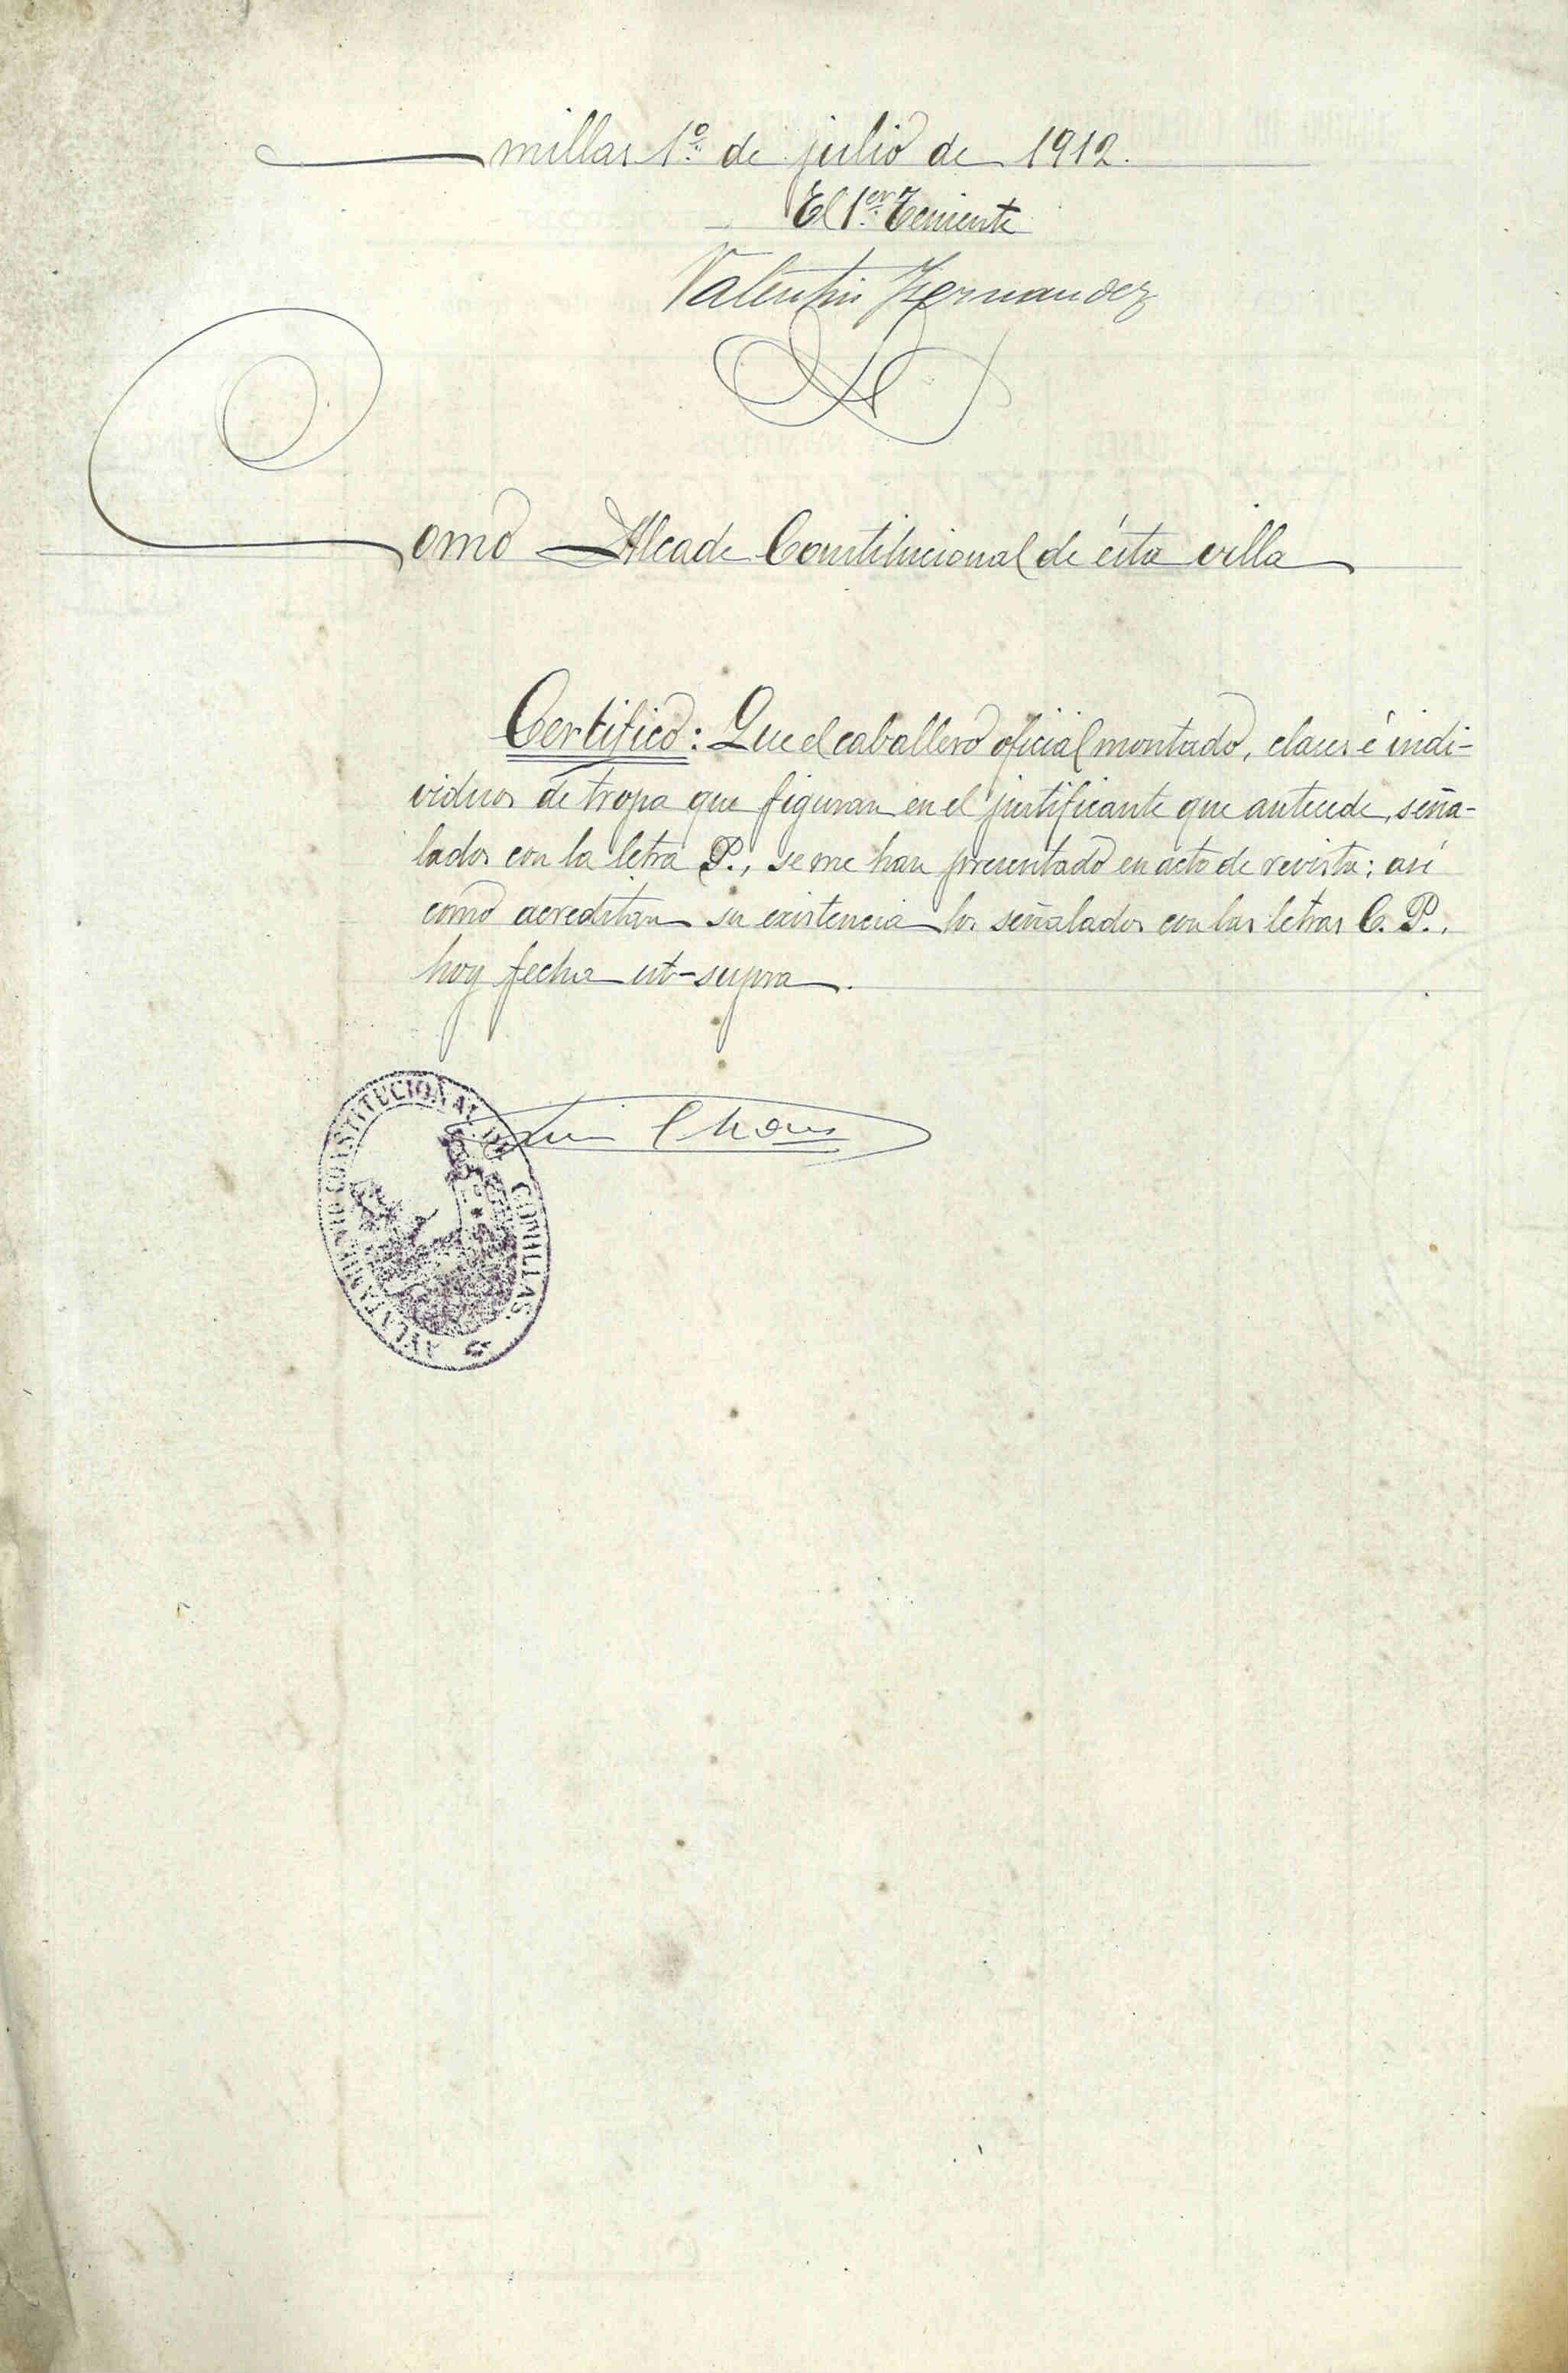 millas 1º de julio de 1912.
El 1er Teniente
Valentin Hernandez
Como Alcade Constitucional de ésta villa
Certifico: Que el caballero oficial montado, clases é indi-
viduos de tropa que figuran en el justificante que antecede, seña-
lados con la letra P., se me han presentado en acto de revista; así
como acreditan su existencia los señalados con las letras C. P.,
hoy fecha ut-supra.
AYUNTAMIENTO CONSTITUCIONAL DE COMILLAS